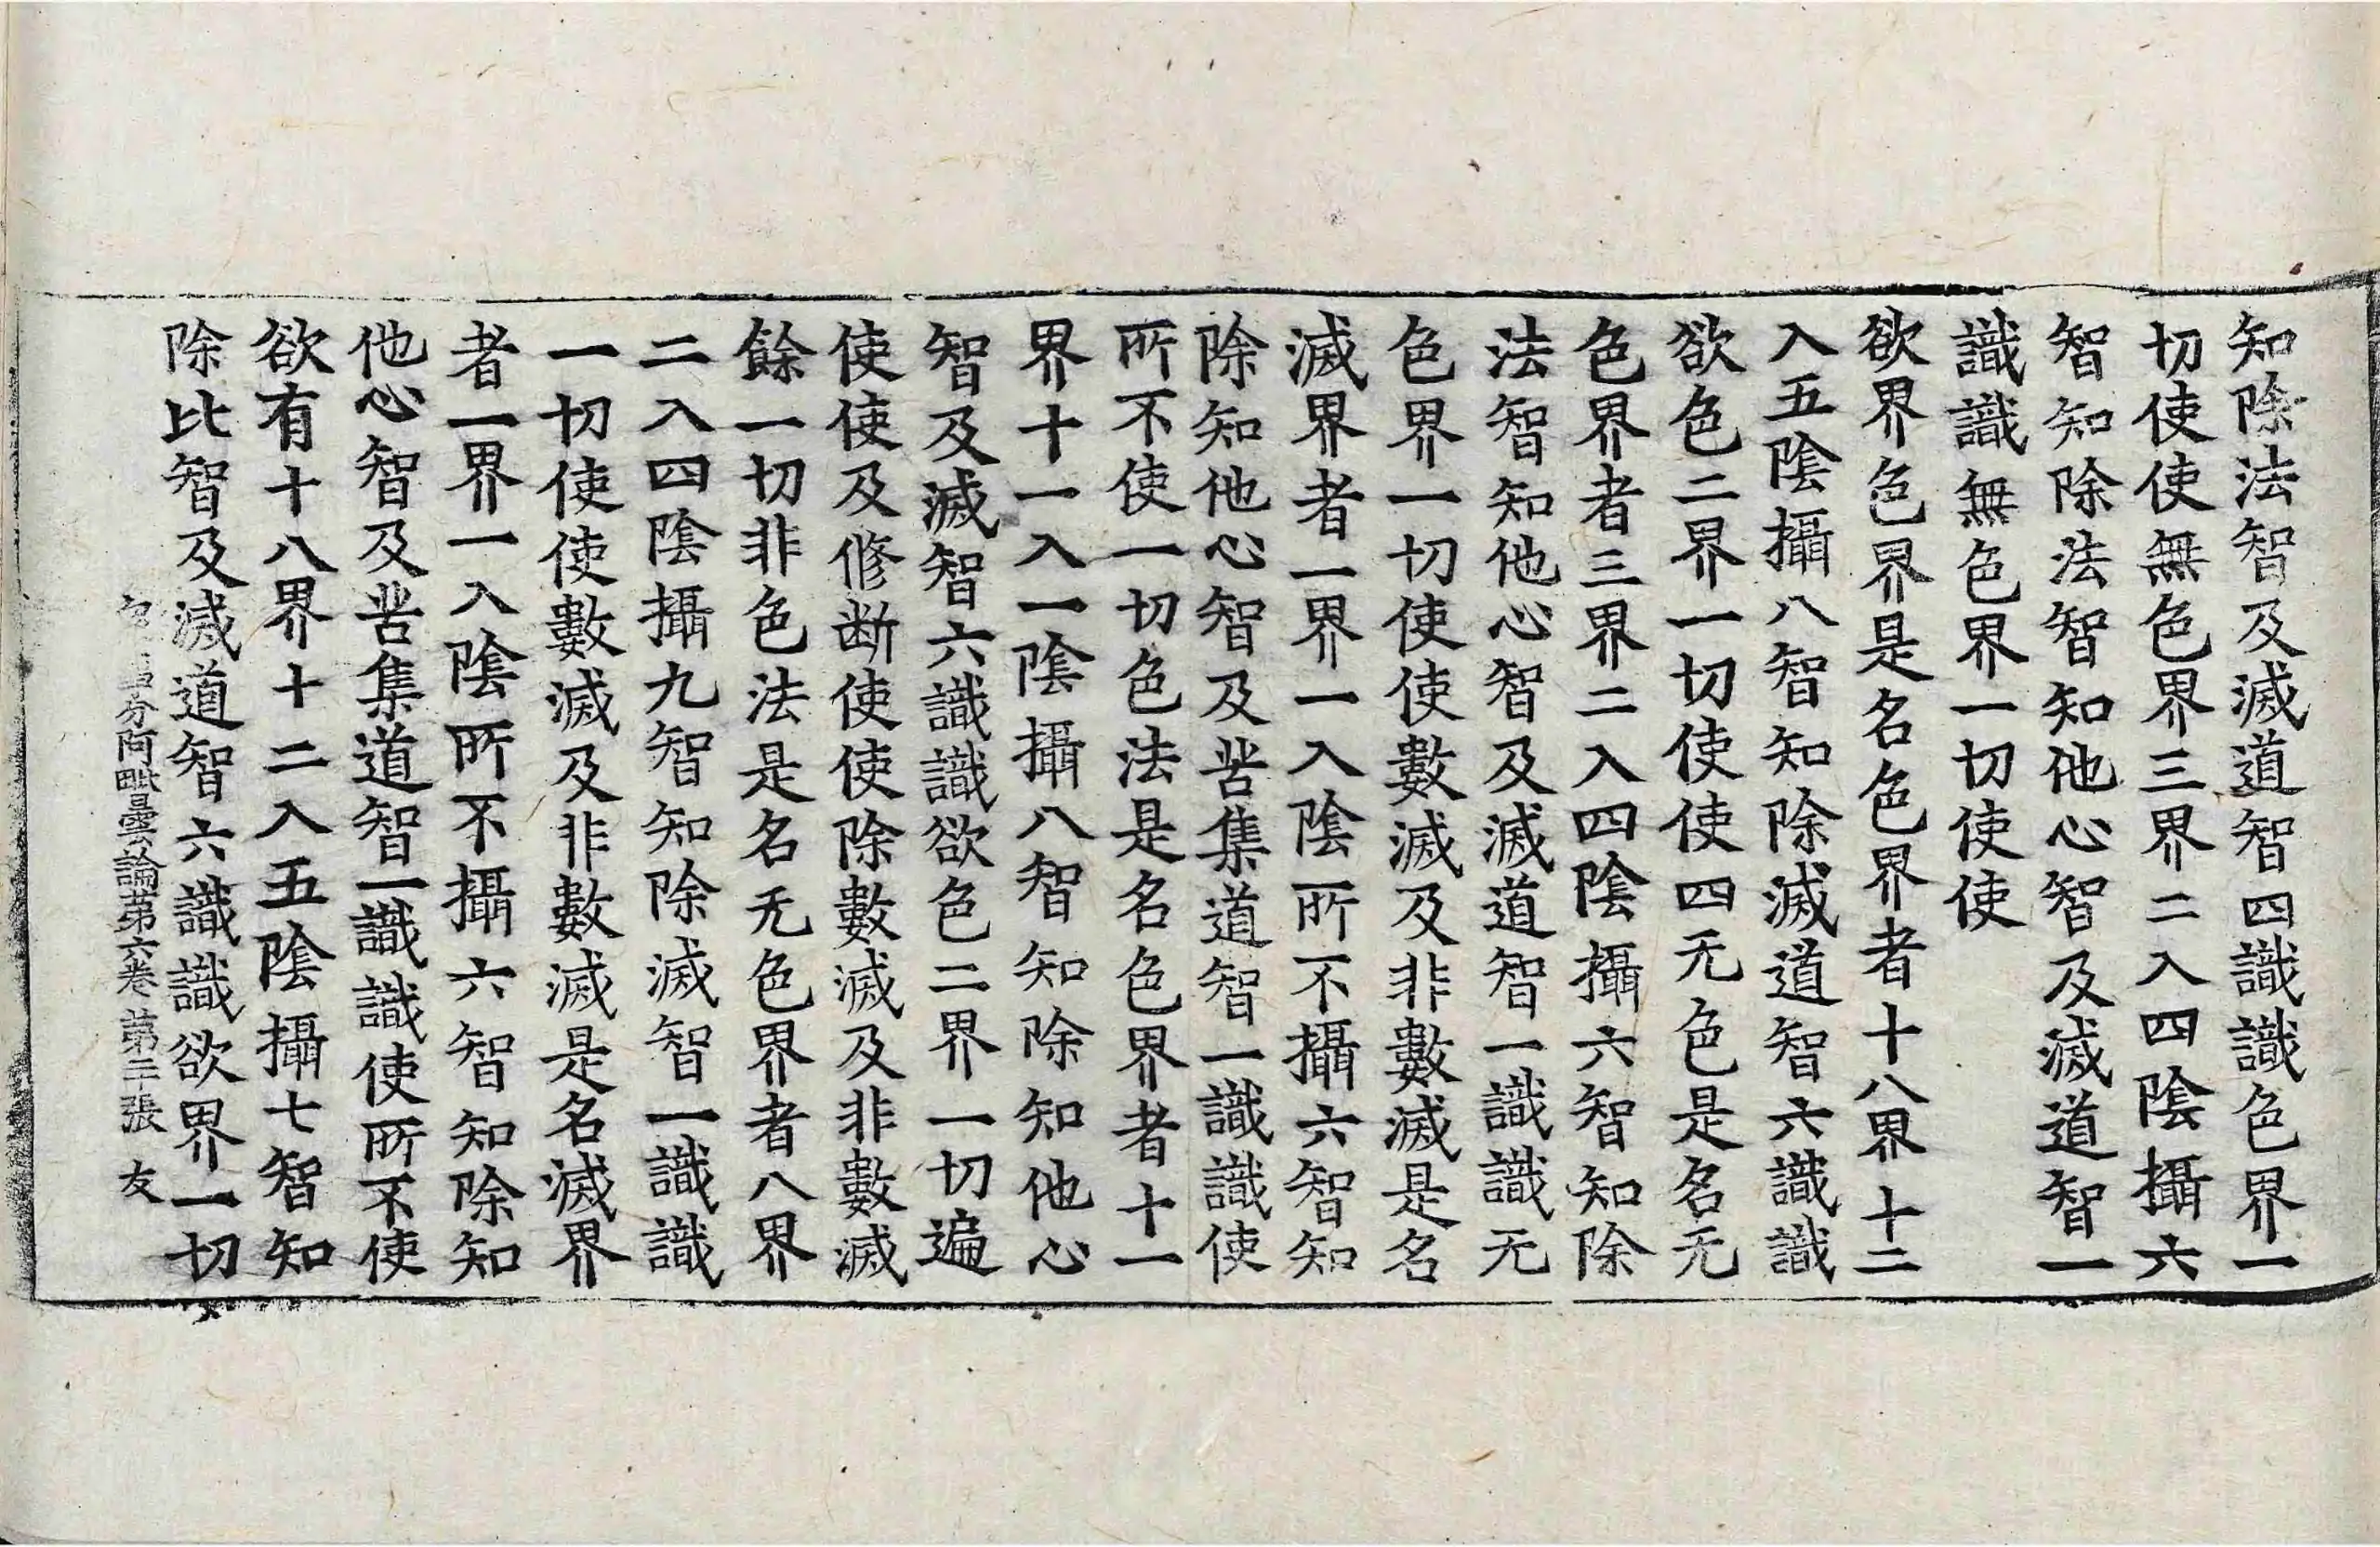 知除法智及滅道智四識識色界一
切使使無色界三界二入四陰攝六
智知除法智知他心智及滅道智一
識識無色界一切使使
欲界色界是名色界者十八界十二
入五陰攝八智知除滅道智六識識
欲色二界一切使使四无色是名无
色界者三界二入四陰攝六智知除
法智知他心智及滅道智一識識无
色界一切使使數滅及非數滅是名
滅界者一界一入陰所不攝六智知
除知他心智及苦集道智一識識使
所不使一切色法是名色界者十一
界十一入一陰攝八智知除知他心
智及滅智六識識欲色二界一切遍
使使及修断使使除數滅及非數滅
餘一切非色法是名无色界者八界
二入四陰攝九智知除滅智一識識
一切使使數滅及非數滅是名滅界
者一界一入陰所不攝六智知除知
他心智及苦集道智一識識使所不使
欲有十八界十二入五陰攝七智知
除比智及滅道智六識識欲界一切
分阿毗曇論第六卷 第二張 友